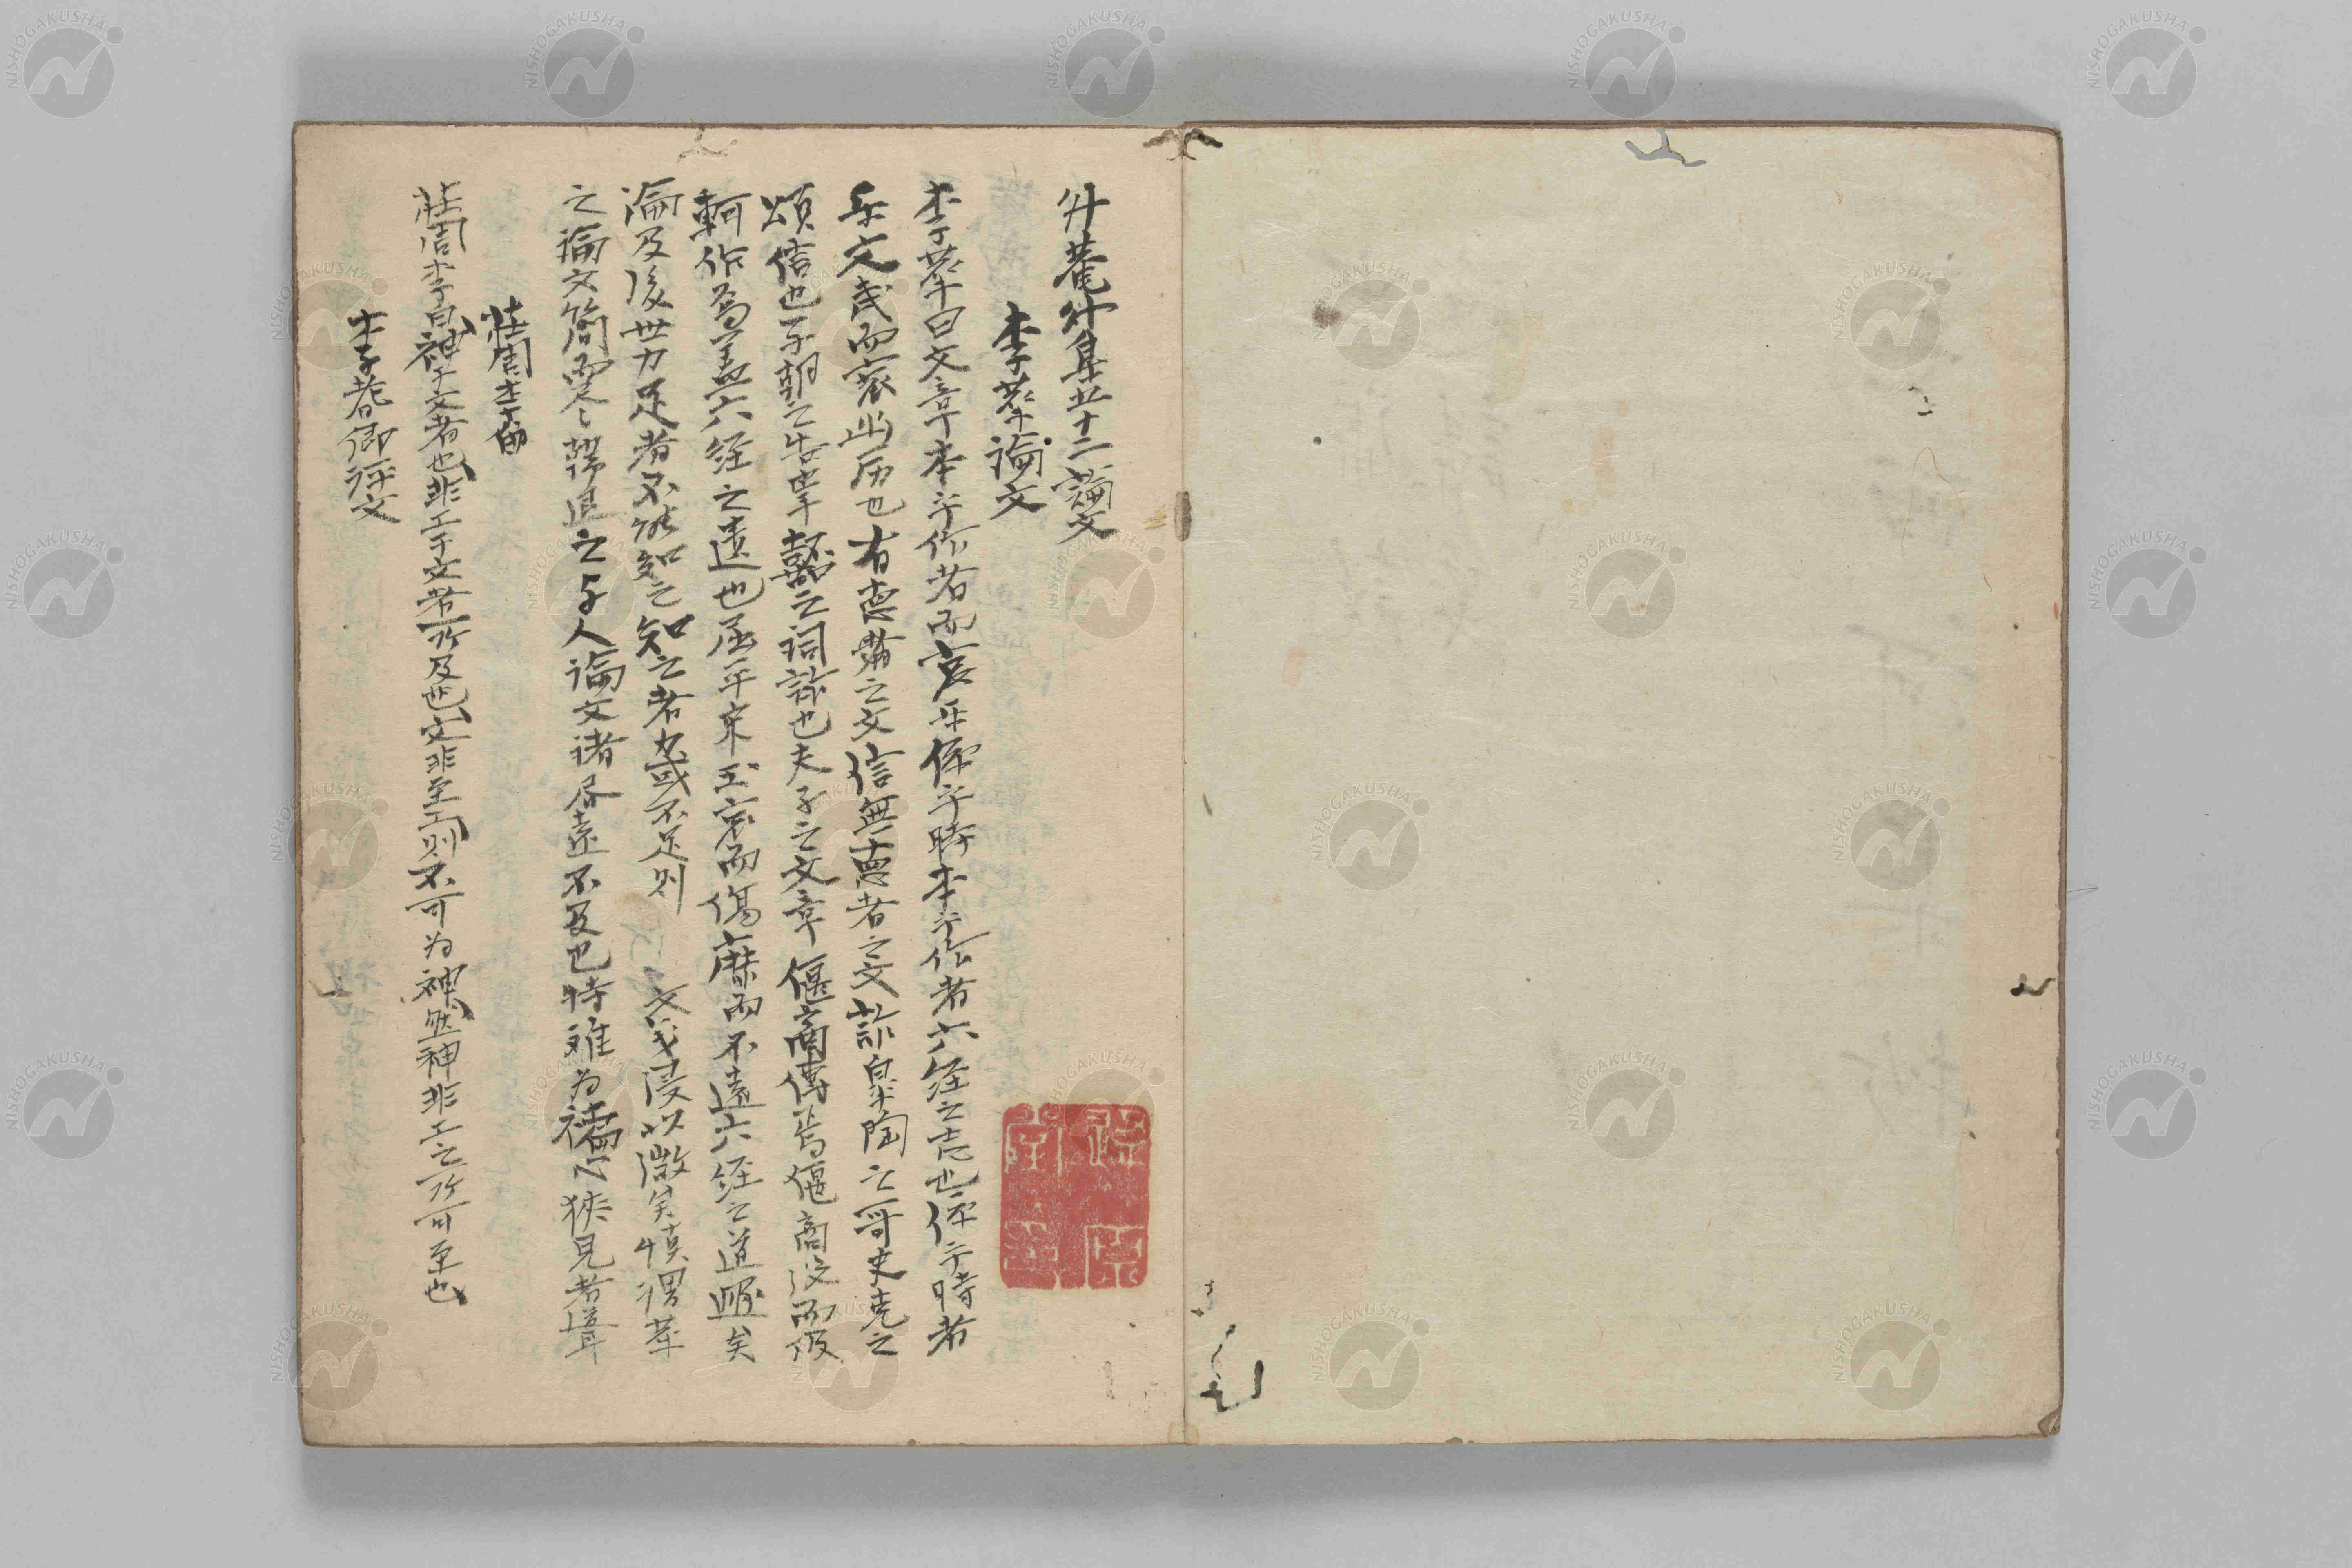 升菴外集五十二論文
李華論文
李華曰文章本乎作者而哀乐係乎時本乎作者六経之志也係乎時者
乐文武而哀幽历也有徳者之文信無徳者之文詐皐陶之哥史克之
頌信也子朝之告宰嚭之詞詐也夫子之文章偃商傳焉偃商没而伋
軻作焉盖六経之遺也屈平宋玉哀而傷靡而不遠六経之道遯矣
論及後世力足者不能知之知之者力或不足則 文義浸以微矣慎謂華
之論文簡而尽韓退之与人論文諸尽遠不及也特难为褊心狭見者道耳
莊周李白
莊周李白神于文者也非工于文者所及也文非至工則不可为神然神非工之所可至也
李耆卿评文
NISHOGAKUSHA